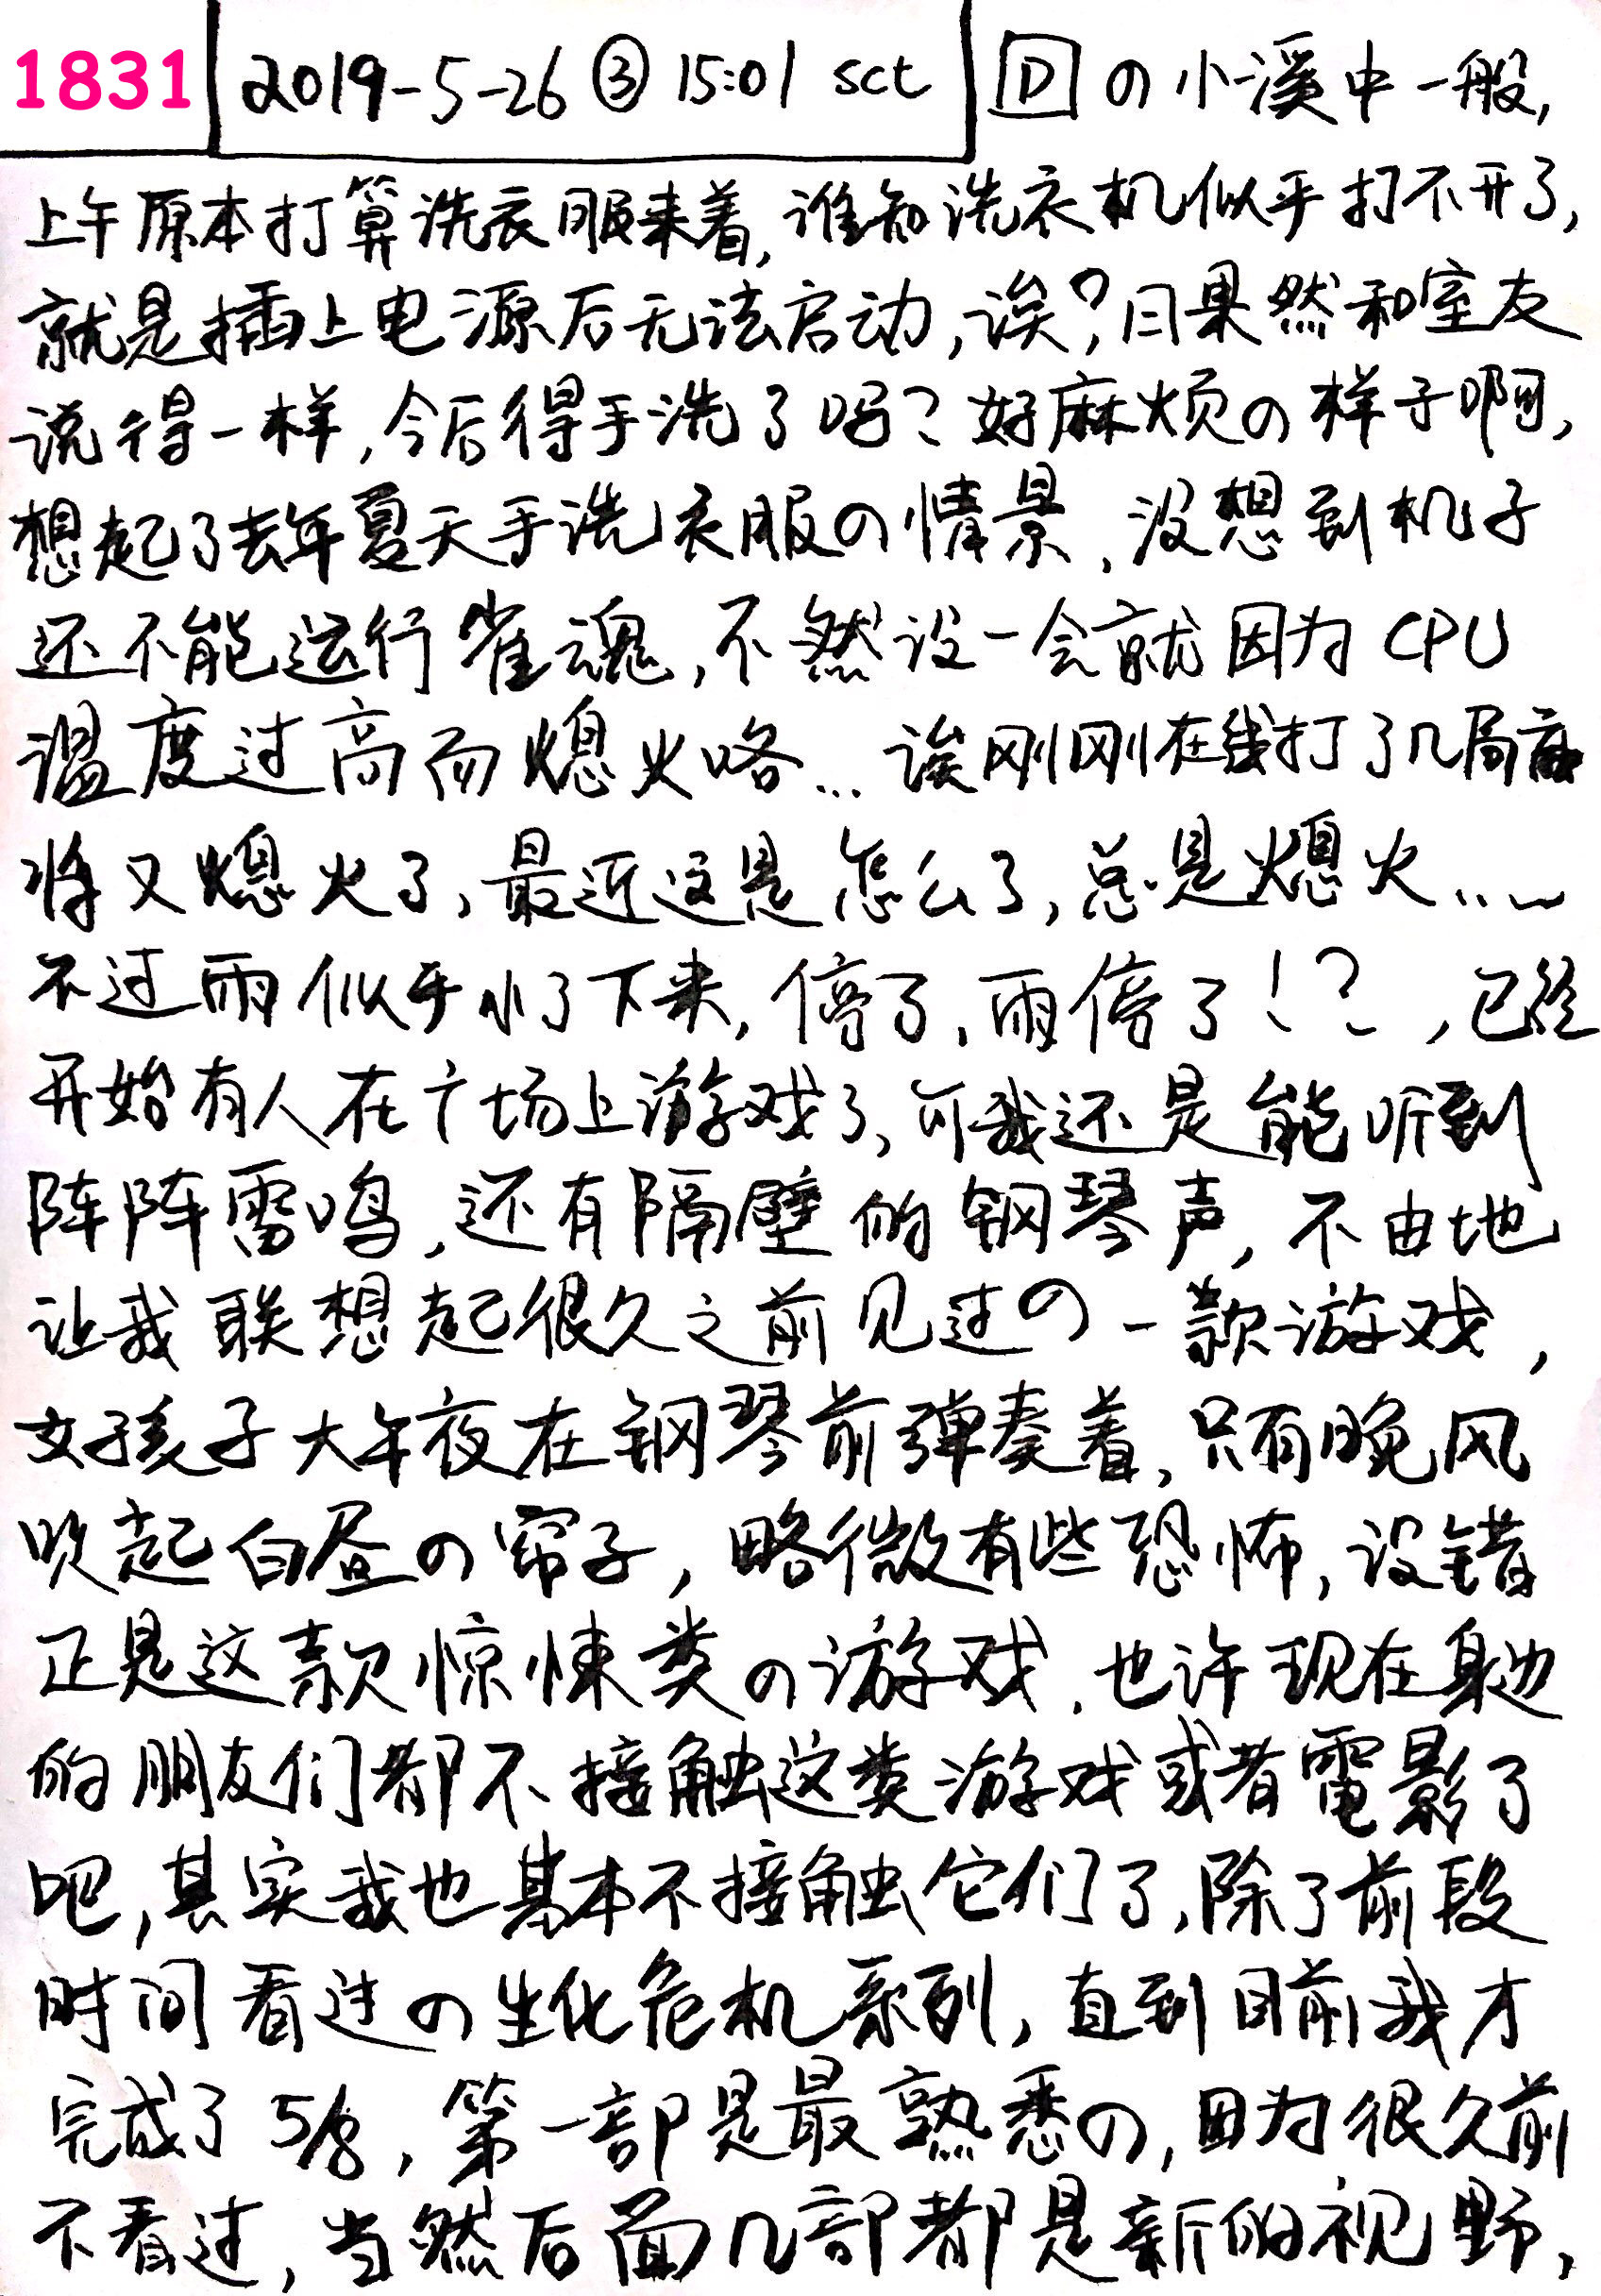 1831 2019-5-26 ③ 15:01 sct D の小溪中一般,
上午原本打算洗衣服来着,谁知洗衣机似乎打不开了,
就是插上电源后无法启动,诶?,果然和室友
说得一样,今后得手洗了吗?好麻烦の样子啊,
想起了去年夏天手洗衣服の情景,没想到机子
还不能运行雀魂,不然没一会就因为CPU
温度过高而熄火咯...诶刚刚在线打了几局麻
将又熄火了,最近这是怎么了,总是熄火...
不过雨似乎小了下来,停了,雨停了!?,已经
开始有人在广场上游戏了,可我还是能听到
阵阵雷鸣,还有隔壁的钢琴声,不由地
让我联想起很久之前见过の一款游戏,
女孩子大年夜在钢琴前弹奏着,只有晚风
吹起白昼の帘子,略微有些恐怖,没错
正是这款惊悚类の游戏,也许现在身边
的朋友们都不接触这类游戏或者電影了
吧,其实我也基本不接触它们了,除了前段
时间看过の生化危机系列,直到目前我才
完成了5/8,第一部是最熟悉の,因为很久前
不看过,当然后面几部都是新的视野,